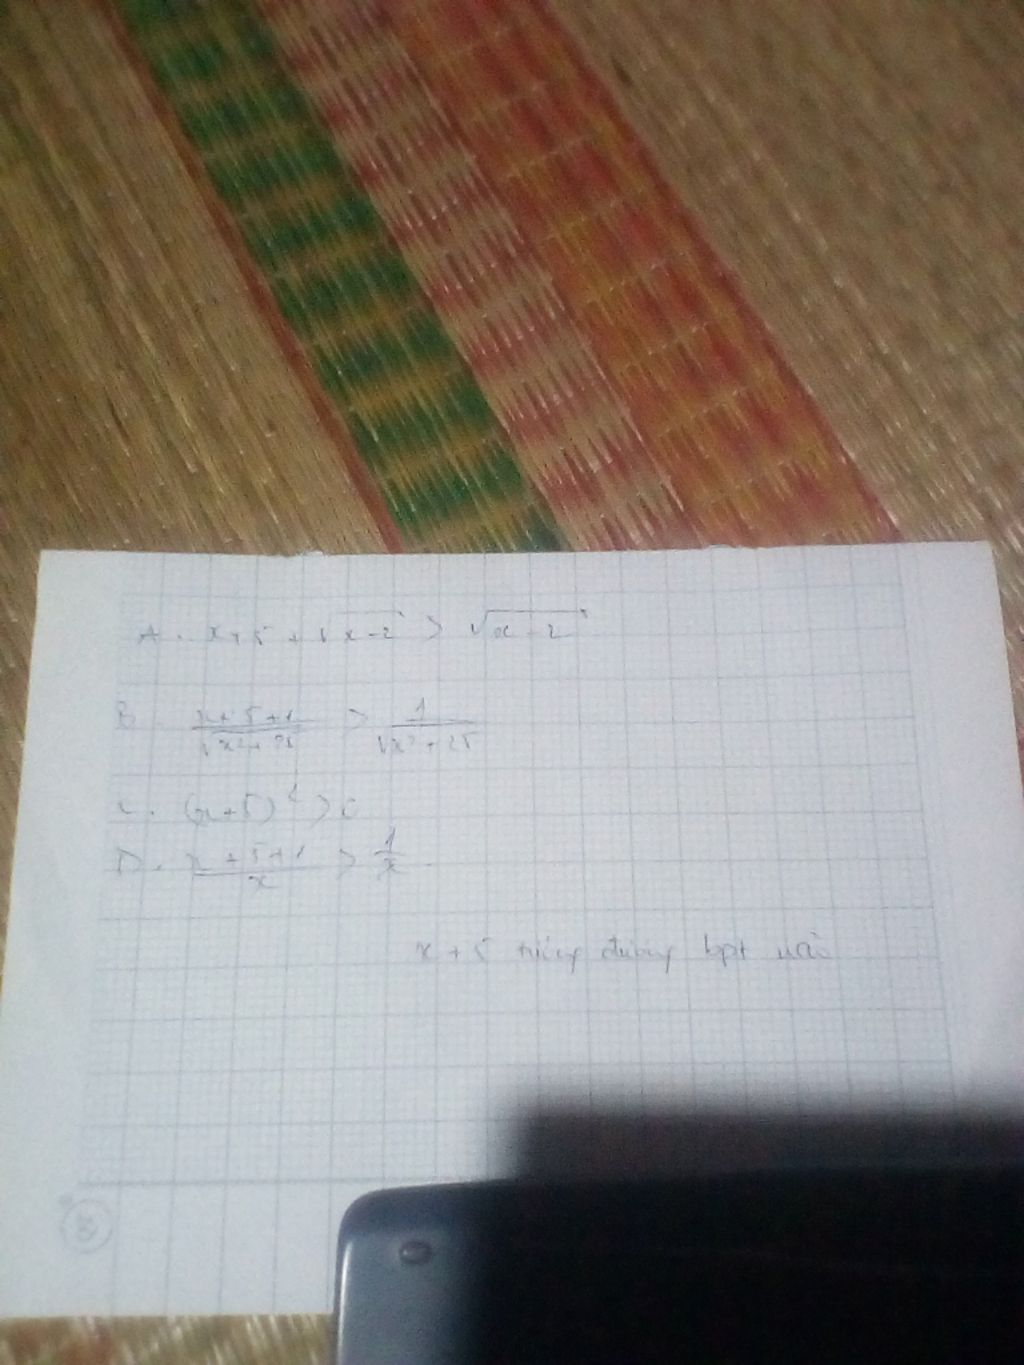 A. x + 5 + √(x-2) > √(x-2)
B. (x+5+1)/√(x²+25) > 1/√(x²+25)
(x+5) >
D. (x+5+1)/x > 1/x
x + 5 tương đương bpt nào
8